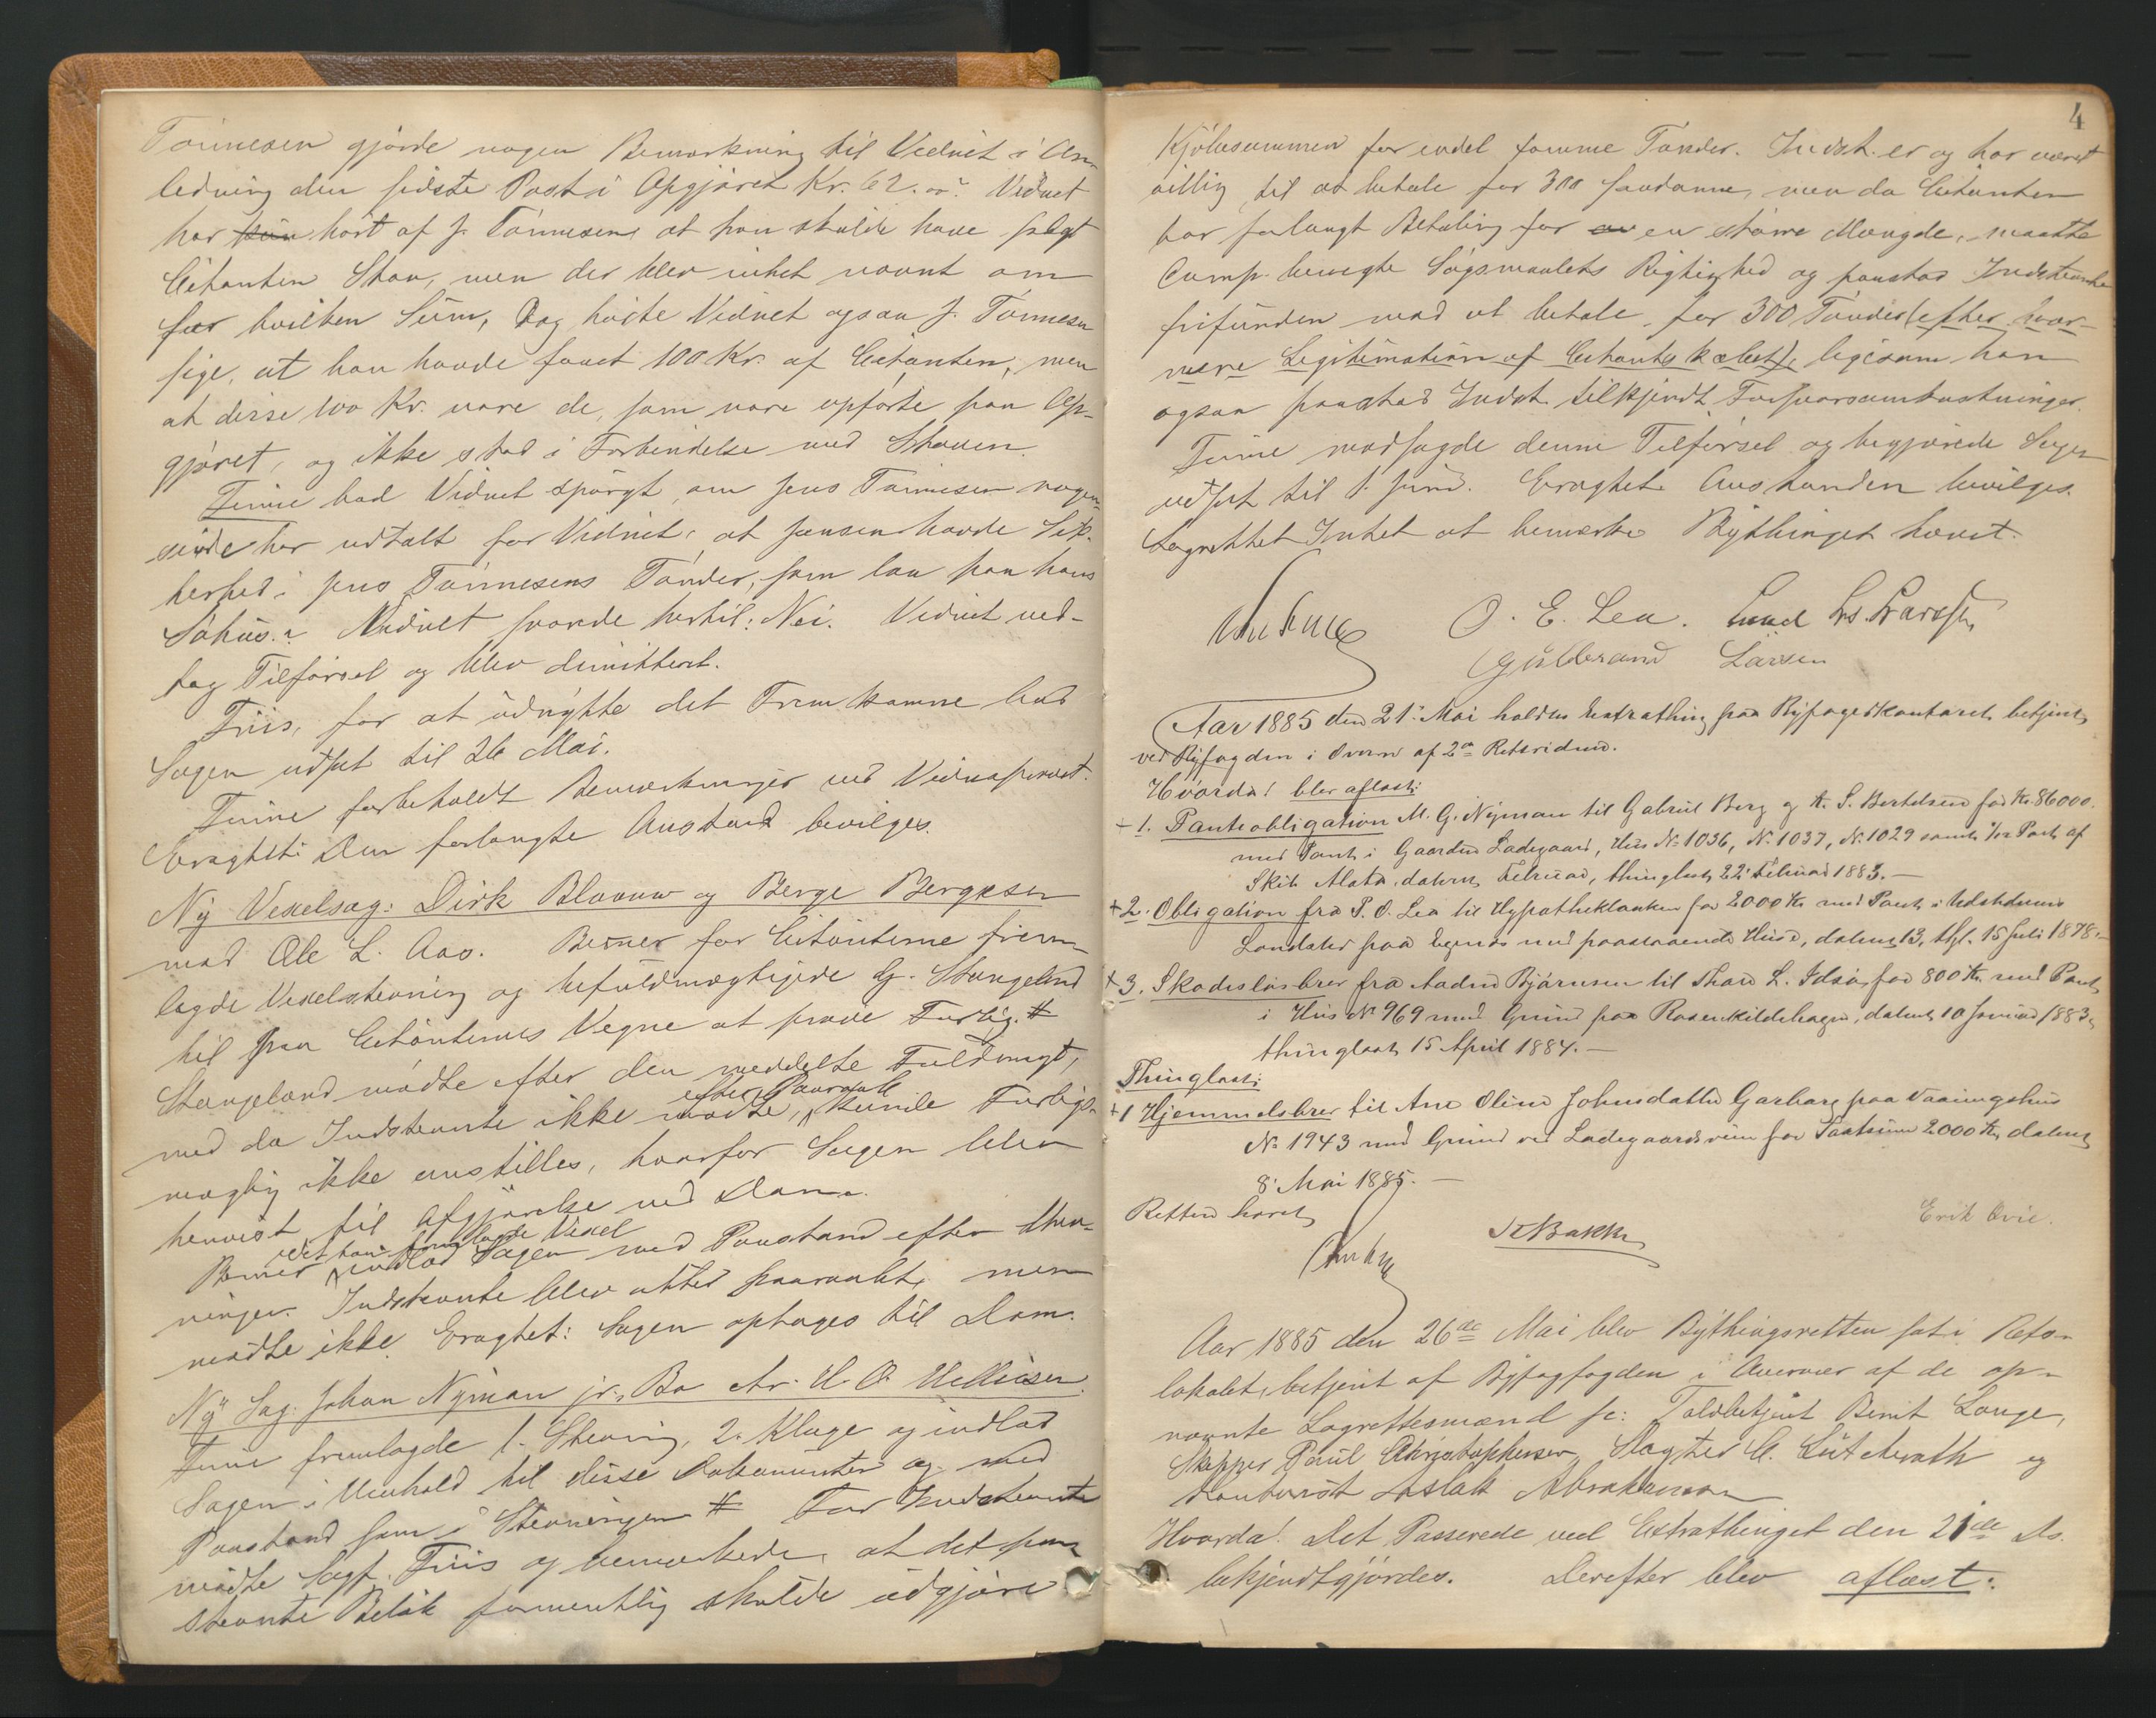 Tönnesen gjorde nogen Bemærkning til Vidnet i An-
ledning den sidste Post i Opgjöret Kr. 62. Vidnet
har kun hört af J. Tönnesen, at han skulde have solgt
Citanten Stav, men der blev intet nævnt om
for hvilken Sum, Dog hörte Vidnet ogsaa J. Tönnesen
sige, at han havde faaet 100 Kr. af Citanten, men
at disse 100 Kr. vare de, som vare opförte paa Op-
gjöret, og ikke stod i Forbindelse med Staven.
Time bad Vidnet spörgt, om Jens Tönnesen nogen-
sinde har udtalt for Vidnet, at Jansen havde Sik-
kerhed i Jens Tönnesens Tönder, som laa paa hans
Söhus.? Vidnet svarede hertil: Nei. Vidnet ved-
tog Tilförsel og blev dimitteret.
Friis, for at udnytte det Fremkomne bad
Sagen udsat til 26 Mai.
Time forbeholdt Bemærkninger ved Vidneförslet.
Eragtet: Den forlangte Anstand bevilges.
Ny Vexelsag: Dirk Blaauw og Berge Bergesen
mod Ole L. Aas. Berner for Citanterne frem-
lagde Vexelstevning og befuldmægtigede G. Stangeland
til paa Citanternes Vegne at pröve Forlig. #
Stangeland mödte efter den meddelte Fuldmagt,
med da Indstevnte ikke mödte, efter Paaraab kunde Forligs-
mægling ikke anstilles, hvorfor Sagen blev
henvist til Afgjörelse ved Dom.
idet han fremlagde Vexel
Berner indlod Sagen med Paastand efter Stev-
ningen. Indstevnte blev atter paaraabt, men
mödte ikke. Eragtet: Sagen optages til Dom.
Ny Sag: Johan Nyman jr. Bo Ctr. H. O. Helliesen.
Time fremlagde 1. Stevning, 2. Klage og indlod
Sagen i Henhold til disse Dokumenter og med
Paastand som i Stevningen # For Indstevnte
mödte Sagf. Friis og bemærkede, at det paa-
stevnte Belöb formentlig skulde udgjöre
4
Kjöbesummen for endel tomme Tönder. Indst. er og har været
villig til at betale for 300 saadanne, men da Citanten
har forlangt Betaling for en större Mængde, maatte
Comp. benegte Sögsmaalets Rigtighed og paastod Indstevnte
frifunden mod at betale for 300 Tönder (efter nær-
mere Legitimation af Citants k ), ligesom han
ogsaa paastod Indst. tilkjendt Forsvarsomkostninger.
Time modsagde denne Tilförsel og begjærede Sagen
udsat til 1. Juni. Eragtet: Anstanden bevilges.
Lagrettet Intet at bemærke Bythinget hævet.
O. E. Lea. Lars. Larsen
Guldbrand Larsen
Aar 1885 den 21' Mai holdtes Extrathing paa Byfogedkontoret, betjent
ved Byfogden i Overvær af 2de Retsvidner.
Hvorda! blev aflæst:
+ 1. Pantiobligation M. G. Nyman til Gabriel Berg og K. S. Bertelsen for Kr 86000
med Pant i Gaarden Ladegaard, Hus No 1036, No 1037, No 1029 samt 1/2 Part af
Skib Alata, dateret Februar, thinglæst 22' Februar 1883.—
+ 2. Obligation fra P. O. Lea til Hypothekbanken for 2000 Kr med Pant i Udstederens
Landsted paa Egenæs med paastaaende Huse, dateret 13, thgl. 15 Juli 1878.—
+ 3. Skadeslösbrev fra Aadne Björnsen til Thore L. Idsö for 800 Kr. med Pant
i Hus No 969 med Grund paa Rosenkildehagen, dateret 10 Januar 1883,
thinglæst 15 April 1884.—
Thinglæst:
+ 1 Hjemmelsbrev til Ane Oline Johnsdatter Garborg paa Vaaningshus
No 1943 med Grund ved Ladegaardsveien for Taxtsum 2000 Kr, dateret
8' Mai 1885.—
Retten hævet,
Bakke
Erik Ovie.
Aar 1885 den 26de Mai blev Bythingsretten sat i Rets-
lokalet, betjent af Byfogfogden i Overvær af de op-
nævnte Lagrettesmænd sc: Toldbetjent Bernt Lange,
Skipper Paul Christophersen, Slagter C. Lütcherath og
Konturist Aslak Abrahamsen
Hvorda! Det Passerede ved Extrathinget den 21de ds.
bekjendtgjordes. Derefter blev aflæst: